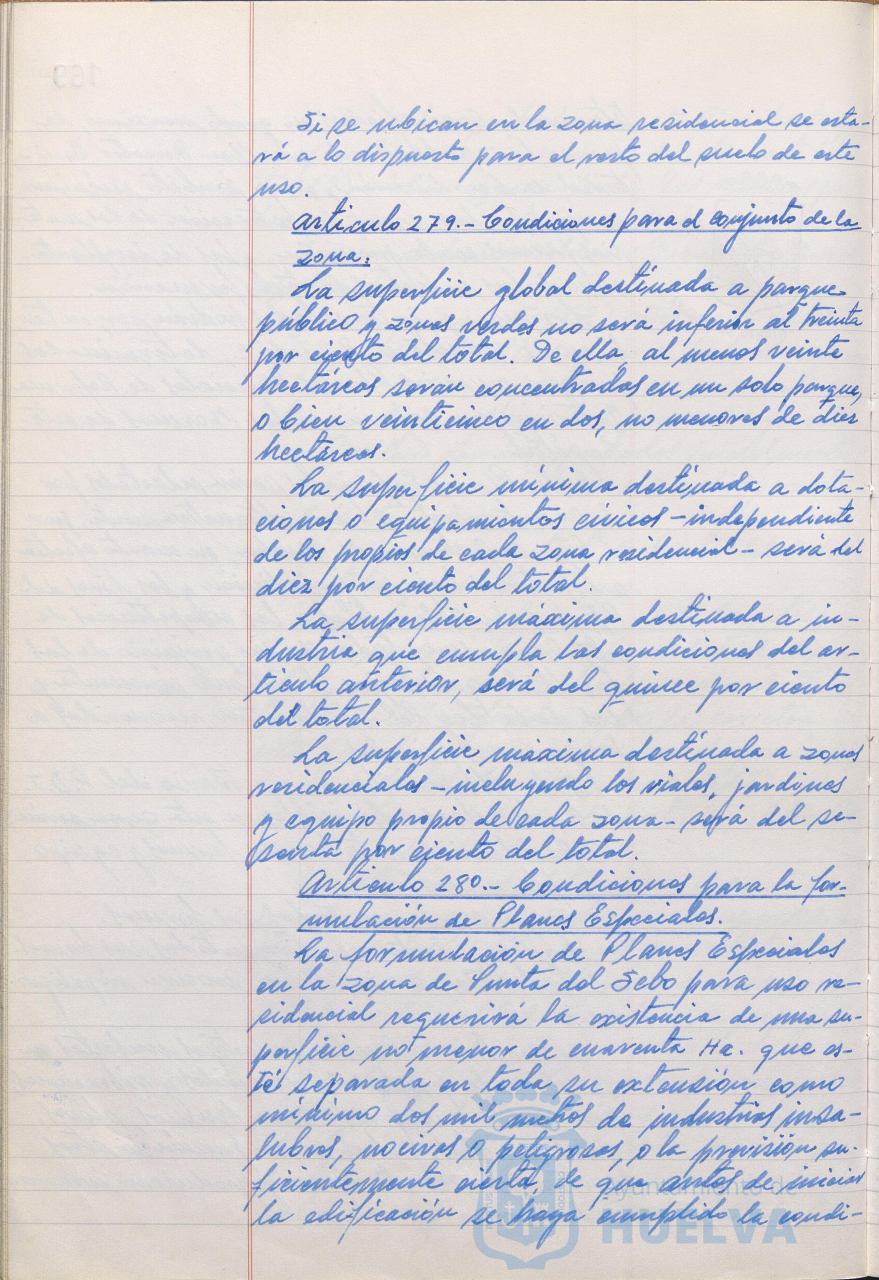 Si se ubican en la zona residencial se esta-
rá a lo dispuesto para el resto del suelo de este
uso.
Articulo 279.- Condiciones para el conjunto de la
zona:
La superficie global destinada a parque
público y zonas verdes no será inferior al treinta
por ciento del total. De ella, al menos veinte
hectáreas serán concentradas en un solo parque,
o bien veinticinco en dos, no menores de diez
hectáreas.
La superficie mínima destinada a dota-
ciones o equipamientos cívicos - independiente
de los propios de cada zona residencial - será del
diez por ciento del total.
La superficie máxima destinada a in-
dustria que cumpla las condiciones del ar-
tículo anterior, será del quince por ciento
del total.
La superficie máxima destinada a zonas
residenciales - incluyendo los viales, jardines
y equipo propio de cada zona - será del se-
senta por ciento del total.
Artículo 280.- Condiciones para la for-
mulación de Planes Especiales.
La formulación de Planes Especiales
en la zona de Punta del Sebo para uso re-
sidencial requerirá la existencia de una su-
perficie no menor de cuarenta Ha. que es-
té separada en toda su extensión como
mínimo dos mil metros de industrias insa-
lubres, nocivas o peligrosas, o la previsión su-
ficientemente cierta de que antes de iniciar
la edificación se haya cumplido la condi-
Ayuntamiento de
HUELVA